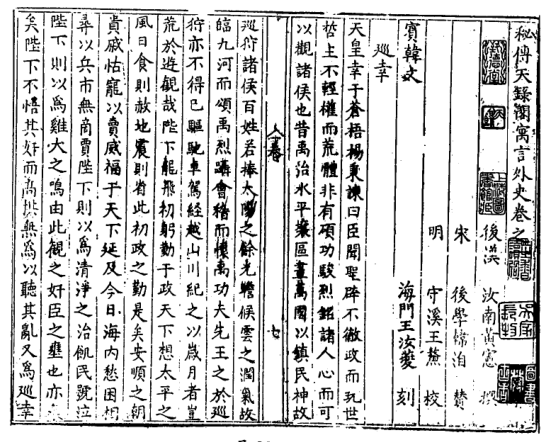 秘傳天錄閣寓言外史卷之
後漢 汝南黃憲 撰
宋 後學韓洎 贊
明 守溪王鏊 校
海門王汝夔 刻
賓韓文
巡幸
天皇幸于蒼梧楊秉諫曰臣聞聖辟不徹政而玩世
哲主不輕權而荒體非有碩功駿烈銘諸人心而可
以觀諸侯也昔禹治水平壤區畫萬國以鎮民神故
巡狩諸侯百姓若捧太陽之餘光瞻候雲之潤氣故
臨九河而頌禹烈議會稽而懷禹功夫先王之於巡
狩亦不得已驅馳車駕經越山川紀之以歲月者豈
荒於遊觀哉陛下龍飛初躬勤于政天下想太平之
風日食則赦地震則省此初政之勤是矣安順之朝
貴戚怙寵以賣威福于天下延及今日海内愁困相
尋以兵市無商賈陛下則以為清淨之治飢民號泣
陛下則以為雞犬之鳴由此觀之奸臣之壅也亦
矣陛下不悟其奸而高拱無為以聽其亂又為巡幸